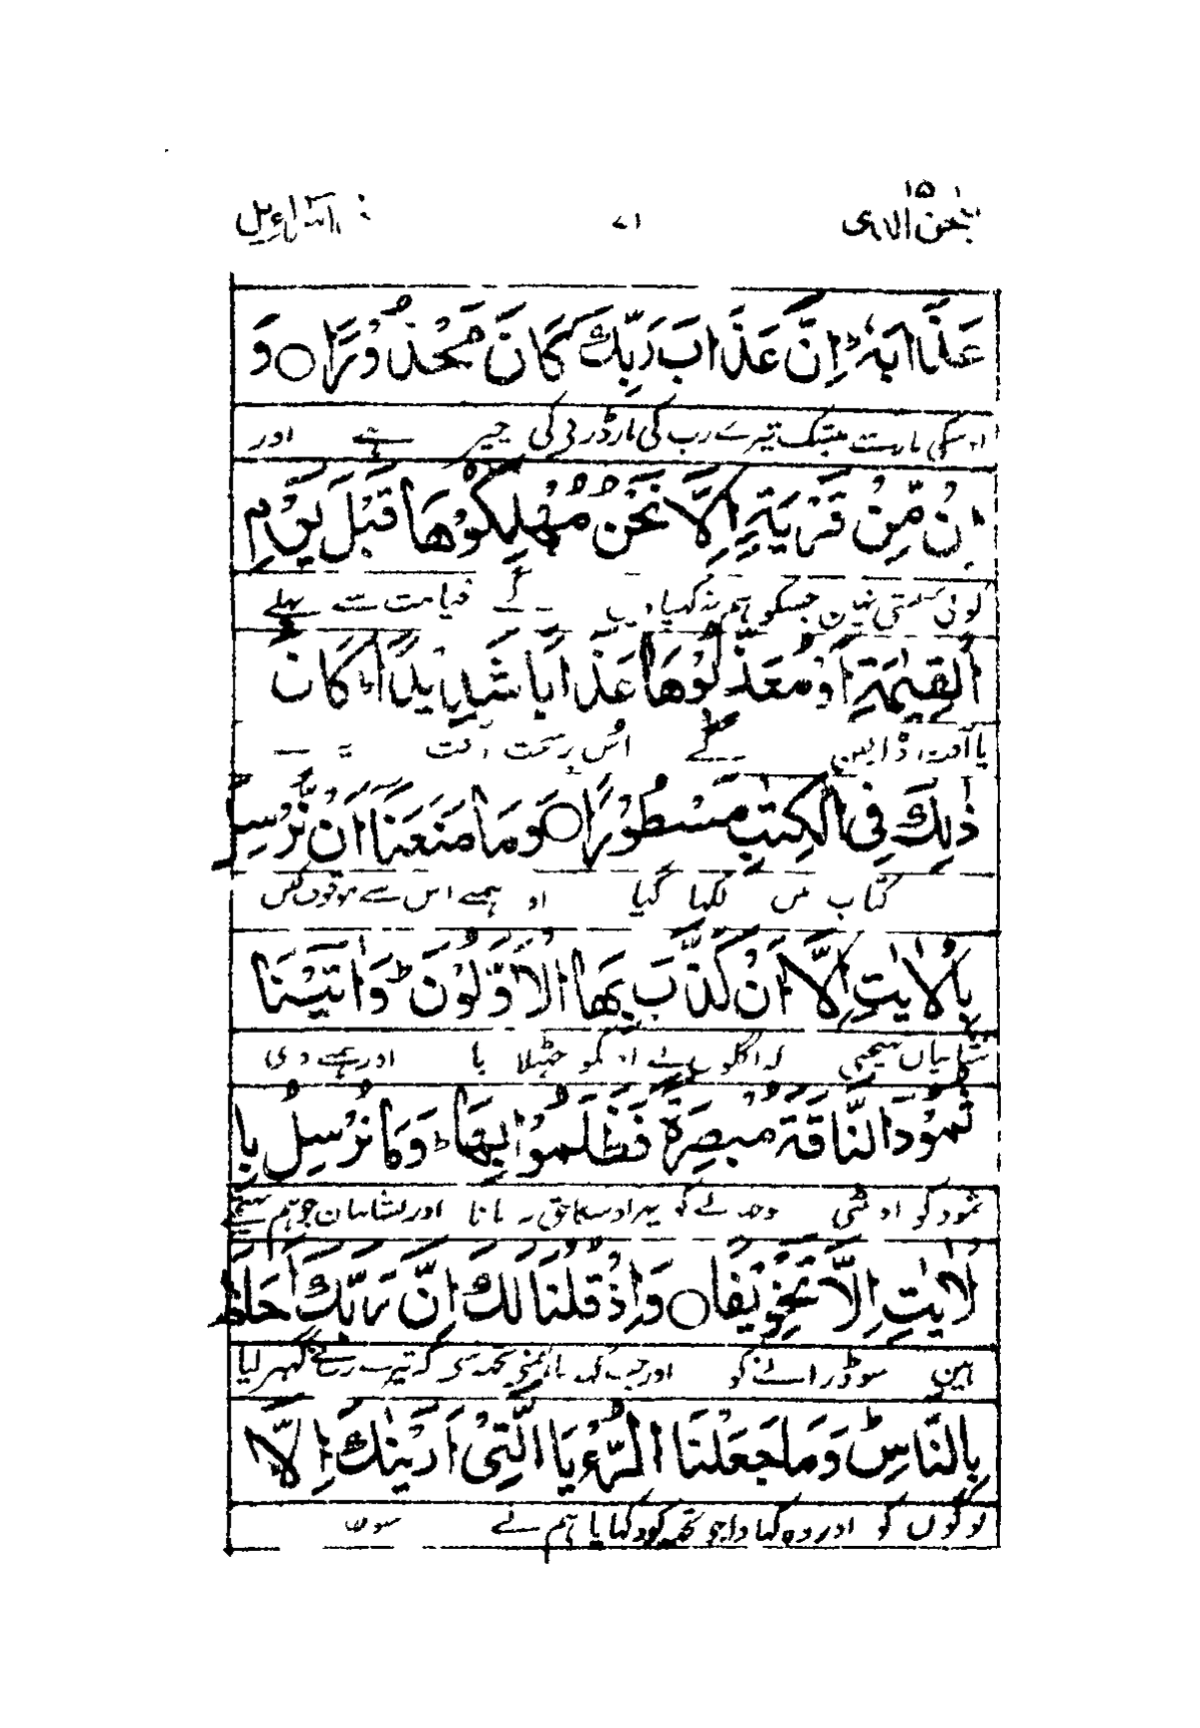 سبحٰن الذی ۱۵ ۷۱ بنی اسرآءیل
عَذَابَهٗ ؕ اِنَّ عَذَابَ رَبِّكَ كَانَ مَحْذُوْرًا ○ وَ
اوسکی مارسے بیشک تیرے رب کی مار ڈرنے کی چیز ہے اور
اِنْ مِّنْ قَرْيَةٍ اِلَّا نَحْنُ مُهْلِكُوْهَا قَبْلَ يَوْمِ
کوئی بستی نہین جسکو ہم نہ کھپا دیں گے قیامت سے پہلے
الْقِيٰمَةِ اَوْ مُعَذِّبُوْهَا عَذَابًا شَدِيْدًا ؕ كَانَ
یا آفت ڈالین گے اُس پر سخت آفت
ذٰلِكَ فِى الْكِتٰبِ مَسْطُوْرًا ○ وَ مَا مَنَعَنَآ اَنْ نُّرْسِلَ
کتاب میں لکھا گیا اور ہمنے اس سے موقوف کیں
بِالْاٰيٰتِ اِلَّآ اَنْ كَذَّبَ بِهَا الْاَوَّلُوْنَ ؕ وَ اٰتَيْنَا
نشانیاں بھیجنی کہ اگلوں نے ان کو جھٹلا یا اور ہمنے دی
ثَمُوْدَ النَّاقَةَ مُبْصِرَةً فَظَلَمُوْا بِهَا ؕ وَ مَا نُرْسِلُ بِا
ثمود کو اونٹنی سوجھانے کو پہر اوسکا حق نہ مانا اور نشانیان جو ہم بھیجتے
لْاٰيٰتِ اِلَّا تَخْوِيْفًا ○ وَ اِذْ قُلْنَا لَكَ اِنَّ رَبَّكَ اَحَاطَ
ہین سو ڈرانے کو اور جب کہہ دیا ہمنے تجھ سے کہ تیرے رب نے گھیر لیا
بِالنَّاسِ ؕ وَ مَا جَعَلْنَا الرُّءْيَا الَّتِىْٓ اَرَيْنٰكَ اِلَّا
لوگوں کو اور وہ دکھاوا جو تجھکو دکھایا ہم نے سو